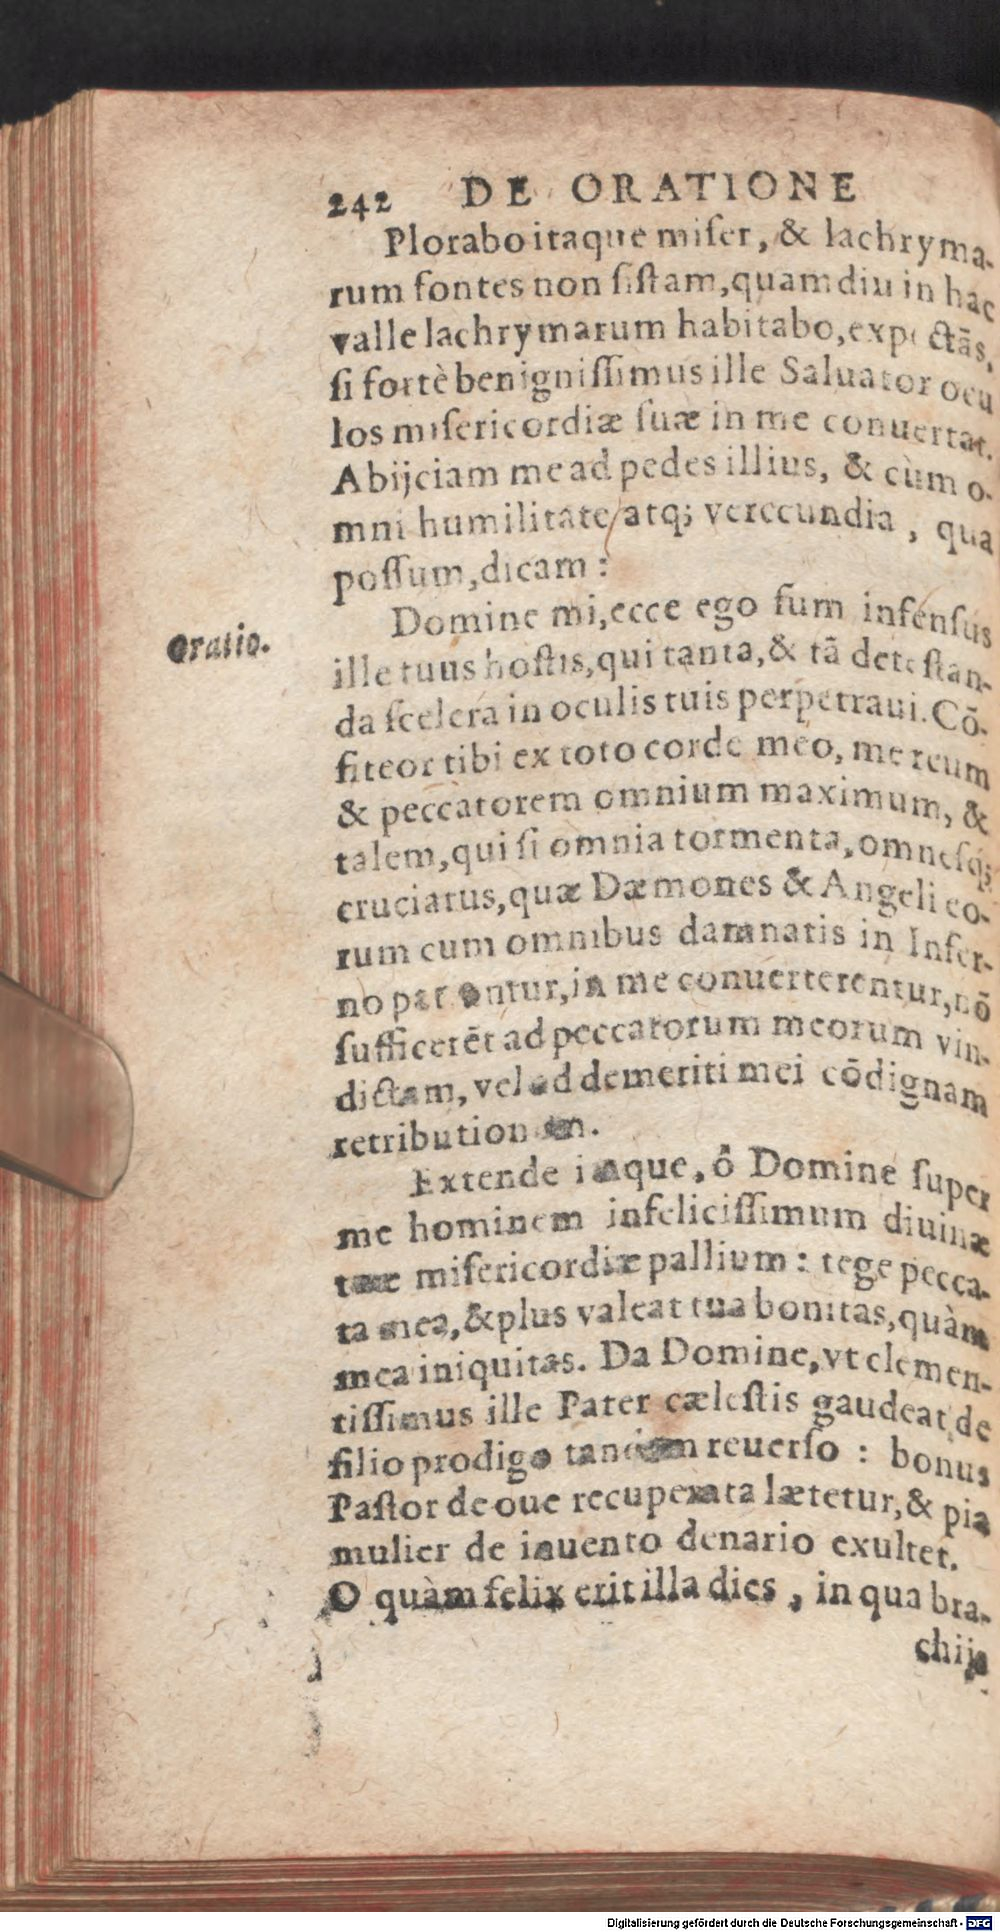 242 DE ORATIONE
Plorabo itaque miſer, & lachryma-
rum fontes non ſiſtam, quamdiu in hac
valle lachrymarum habitabo, expectās,
ſi fortè benigniſſimus ille Saluator ocu
los miſericordiæ ſuæ in me conuertat.
Abijciam me ad pedes illius, & cùm o-
mni humilitate atq; verecundia, qua
poſſum, dicam:
Oratio.
Domine mi, ecce ego ſum infenſus
ille tuus hoſtis, qui tanta, & tā deteſtan-
da ſcelera in oculis tuis perpetraui. Cō-
fiteor tibi ex toto corde meo, me reum
& peccatorem omnium maximum, &
talem, qui ſi omnia tormenta, omneſq́;
cruciatus, quæ Dæmones & Angeli eo-
rum cum omnibus damnatis in Infer-
no patiuntur, in me conuerterentur, nō
ſufficerēt ad peccatorum meorum vin-
dictam, vel ad demeriti mei cōdignam
retributionem.
Extende itaque, ô Domine ſuper
me hominem infeliciſſimum diuinæ
tuæ miſericordiæ pallium: tege pecca-
ta mea, & plus valeat tua bonitas, quàm
mea iniquitas. Da Domine, vt clemen-
tiſſimus ille Pater cæleſtis gaudeat de
filio prodigo tandem reuerſo: bonus
Paſtor de oue recuperata lætetur, & pia
mulier de inuento denario exultet.
O quàm felix erit illa dies, in qua bra-
chijs
Digitalisierung gefördert durch die Deutsche Forschungsgemeinschaft - DFG